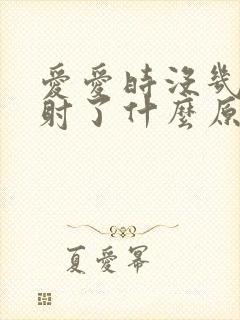 愛愛時沒幾
射了什麼原
夏愛冪